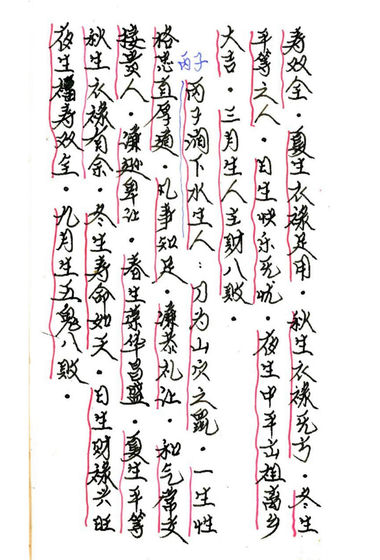 寿双全．夏生衣禄足用．秋生衣禄无亏．冬生
平等之人．日生快乐无忧．夜生中平出祖离乡
大吉．三月生人主财八败．
丙子
丙子涧下水生人：乃为山灾之凯．一生性
格忠直厚道．凡事知足．谦恭礼让．和气常夫
接贵人．谦逊卑让．春生荣华昌盛．夏生平等
秋生衣禄有余．冬生寿命如夫．日生财禄兴旺
夜生福寿双全．九月生五鬼八败．